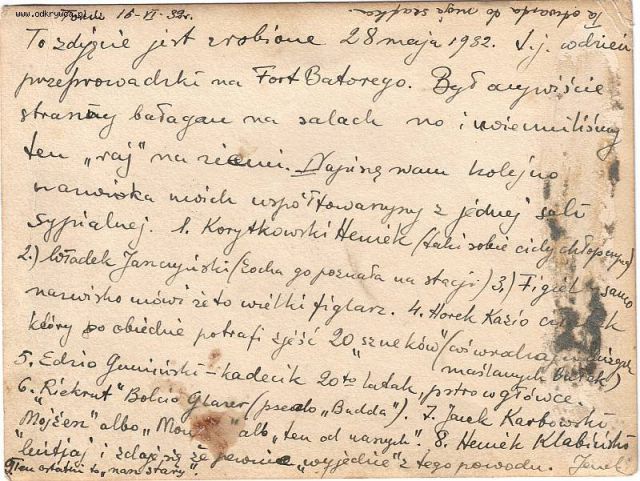 www.odkrywca.pl
15-VI-32r.
Ta otwarta to moja szafka.
To zdjęcie jest zrobione 28 maja 1932. t.j. w dzień
przeprowadzki na Fort Batorego. Był oczywiście
straszny bałagan na salach no i uwieczniliśmy
ten „raj” na ziemi. Napiszę wam kolejno
nazwiska moich współtowarzyszy z jednej sali
sypialnej. 1. Korytkowski Heniek (taki sobie cichy chłopczyna)
2.) Władek Jaszczyński (Zocha go poznała na stacji) 3.) Figiel samo
nazwisko mówi że to wielki figlarz. 4. Horek Kazio
który po obiedzie potrafi zjeść 20 „szneków” (coś w rodzaju dużych
maślanych bułek)
5. Edzio Gumiński – kadecik 20to latek, „pstrogłówce.
6. „Rickrut” Bolcio Glaser (pseudo „Budda”). 7. Janek Karbowski
„Mojżesz” albo albo „ten od naszych”. 8. Heniek Klabińsko
i zdaje się że pewnie „wyjedzie” z tego powodu. Janek
9 Ten ostatni to „nasz stary”.